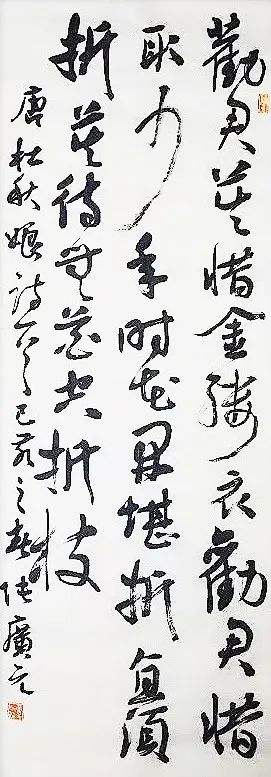 勸君莫惜金縷衣勸君惜
取少年時花開堪折直須
折莫待無花空折枝
唐杜秋娘詩一首己亥之春